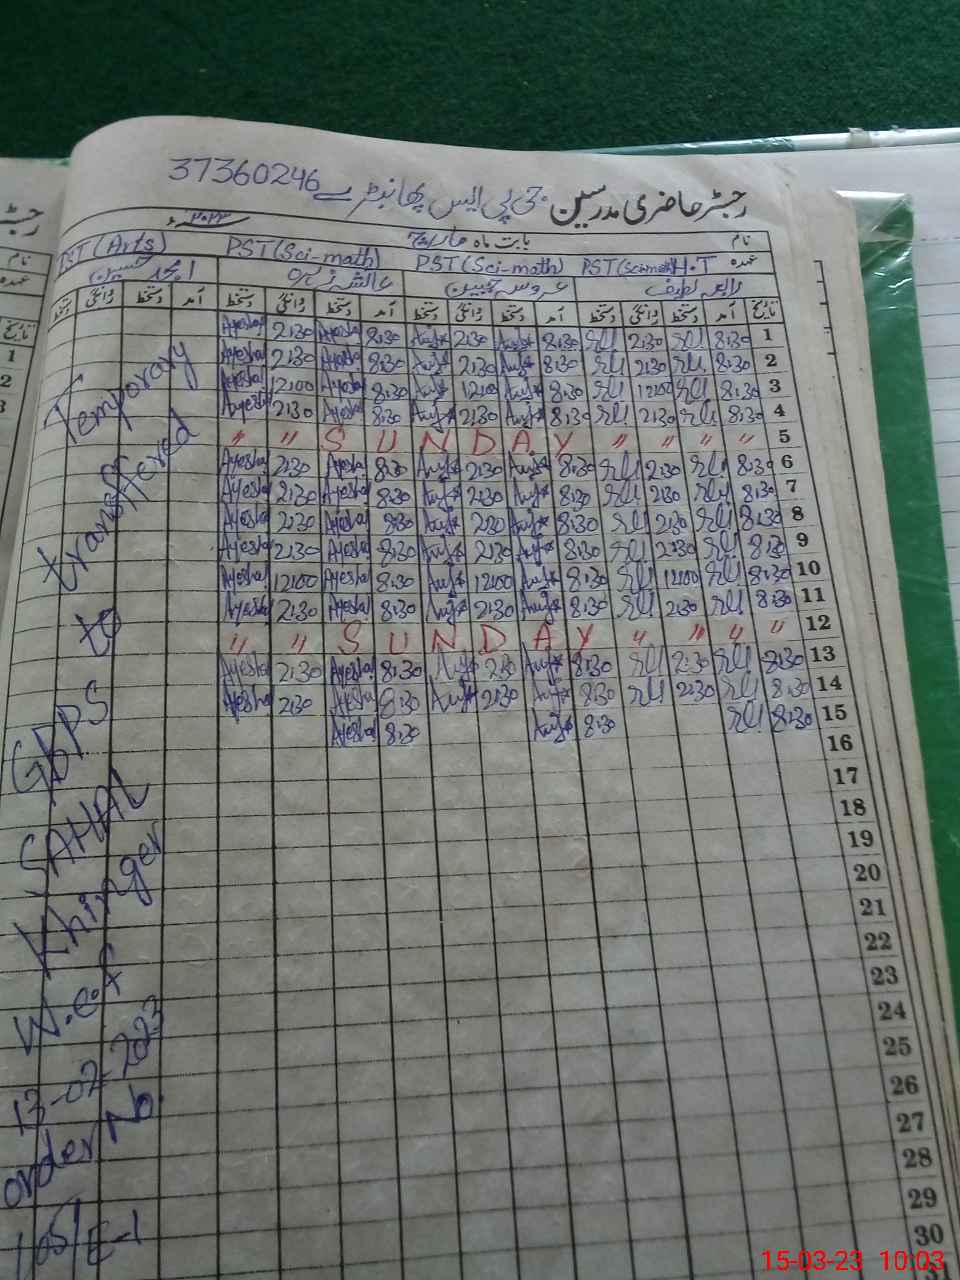 رجسٹر حاضری مدرسین جی پی ایس 37360246
نام بابت ماہ مارچ ۲۰۲۳ء
عہدہ PST (Sci-math) H.T PST (Sci-math) PST (Sci-math) PST (Arts)
رابعہ لطیف عروسہ عائشہ امجد حسین
تاریخ آمد دستخط روانگی دستخط آمد دستخط روانگی دستخط آمد دستخط روانگی دستخط آمد دستخط روانگی دستخط
Ayesha 2:30 Ayesha 8:30 2:30 8:30 2:30 8:30 1
Ayesha 2:30 Ayesha 8:30 2:30 8:30 2:30 8:30 2
Ayesha 12:00 Ayesha 8:30 12:00 8:30 12:00 8:30 3
Ayesha 2:30 Ayesha 8:30 2:30 8:30 2:30 8:30 4
" " S U N D A Y " " " " 5
Ayesha 2:30 Ayesha 8:30 2:30 8:30 2:30 8:30 6
Ayesha 2:30 Ayesha 8:30 2:30 8:30 2:30 8:30 7
Ayesha 2:30 Ayesha 8:30 8:30 2:30 8:30 8
Ayesha 2:30 Ayesha 8:30 2:30 8:30 2:30 8:30 9
Ayesha 12:00 Ayesha 8:30 12:00 8:30 12:00 8:30 10
Ayesha 2:30 Ayesha 8:30 2:30 8:30 2:30 8:30 11
" " S U N D A Y " " " " 12
Ayesha 2:30 Ayesha 8:30 2:30 8:30 2:30 8:30 13
Ayesha 2:30 Ayesha 8:30 2:30 8:30 2:30 8:30 14
Ayesha 8:30 8:30 8:30 15
16
17
18
19
20
21
22
23
24
25
26
27
28
29
30
Temporary
transffered
to
GBPS
SAHAL
Khinger
W.e.f
13-02-2023
order No.
105/E-1
رجسٹر
نام
عہدہ
تاریخ
1
2
3
15-03-23 10:03